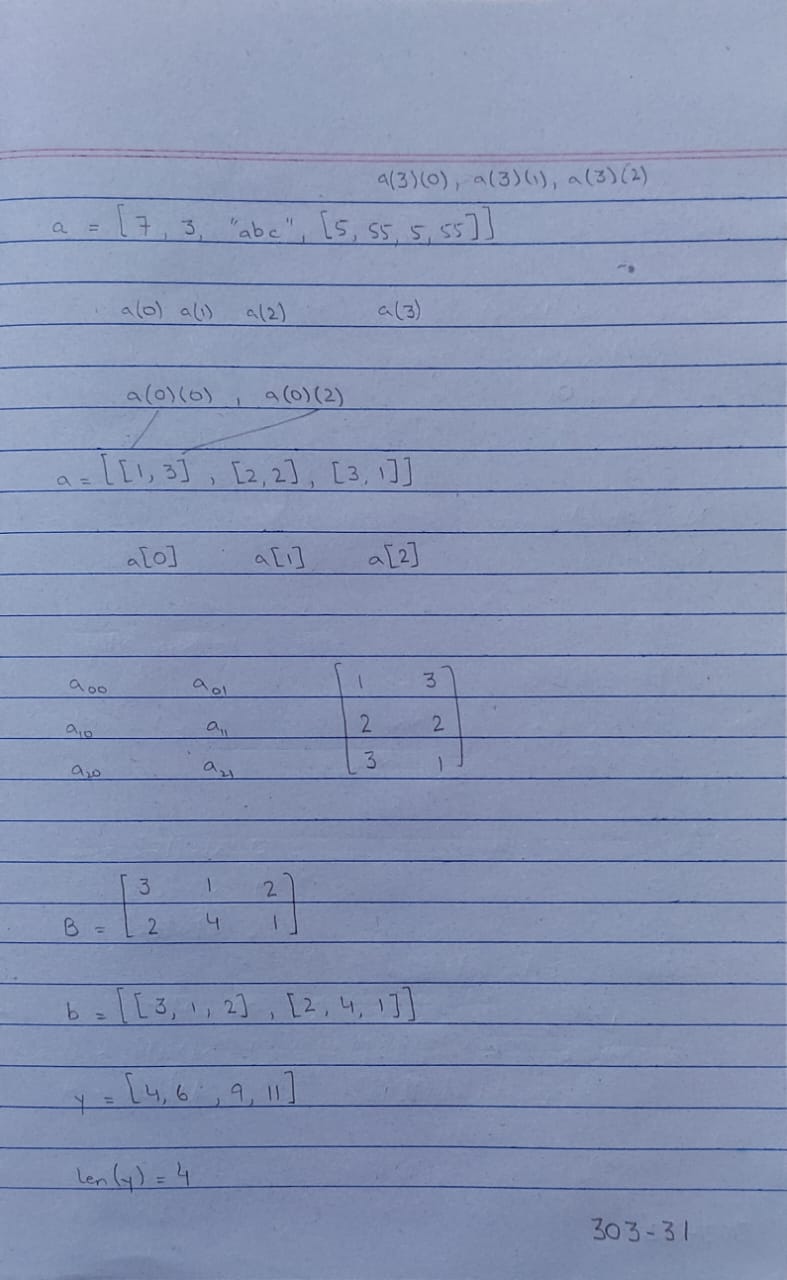 a(3)(0), a(3)(1), a(3)(2)
a = [7, 3, "abc", [5, 55, 5, 55]]
a(0) a(1) a(2) a(3)
a(0)(0), a(0)(2)
a = [[1, 3], [2, 2], [3, 1]]
a[0] a[1] a[2]
a00 a01 [1 3
a10 a11 2 2
a20 a21 3 1]
[3 1 2
B = 2 4 1]
b = [[3, 1, 2], [2, 4, 1]]
y = [4, 6, 9, 11]
len(y) = 4
303-31